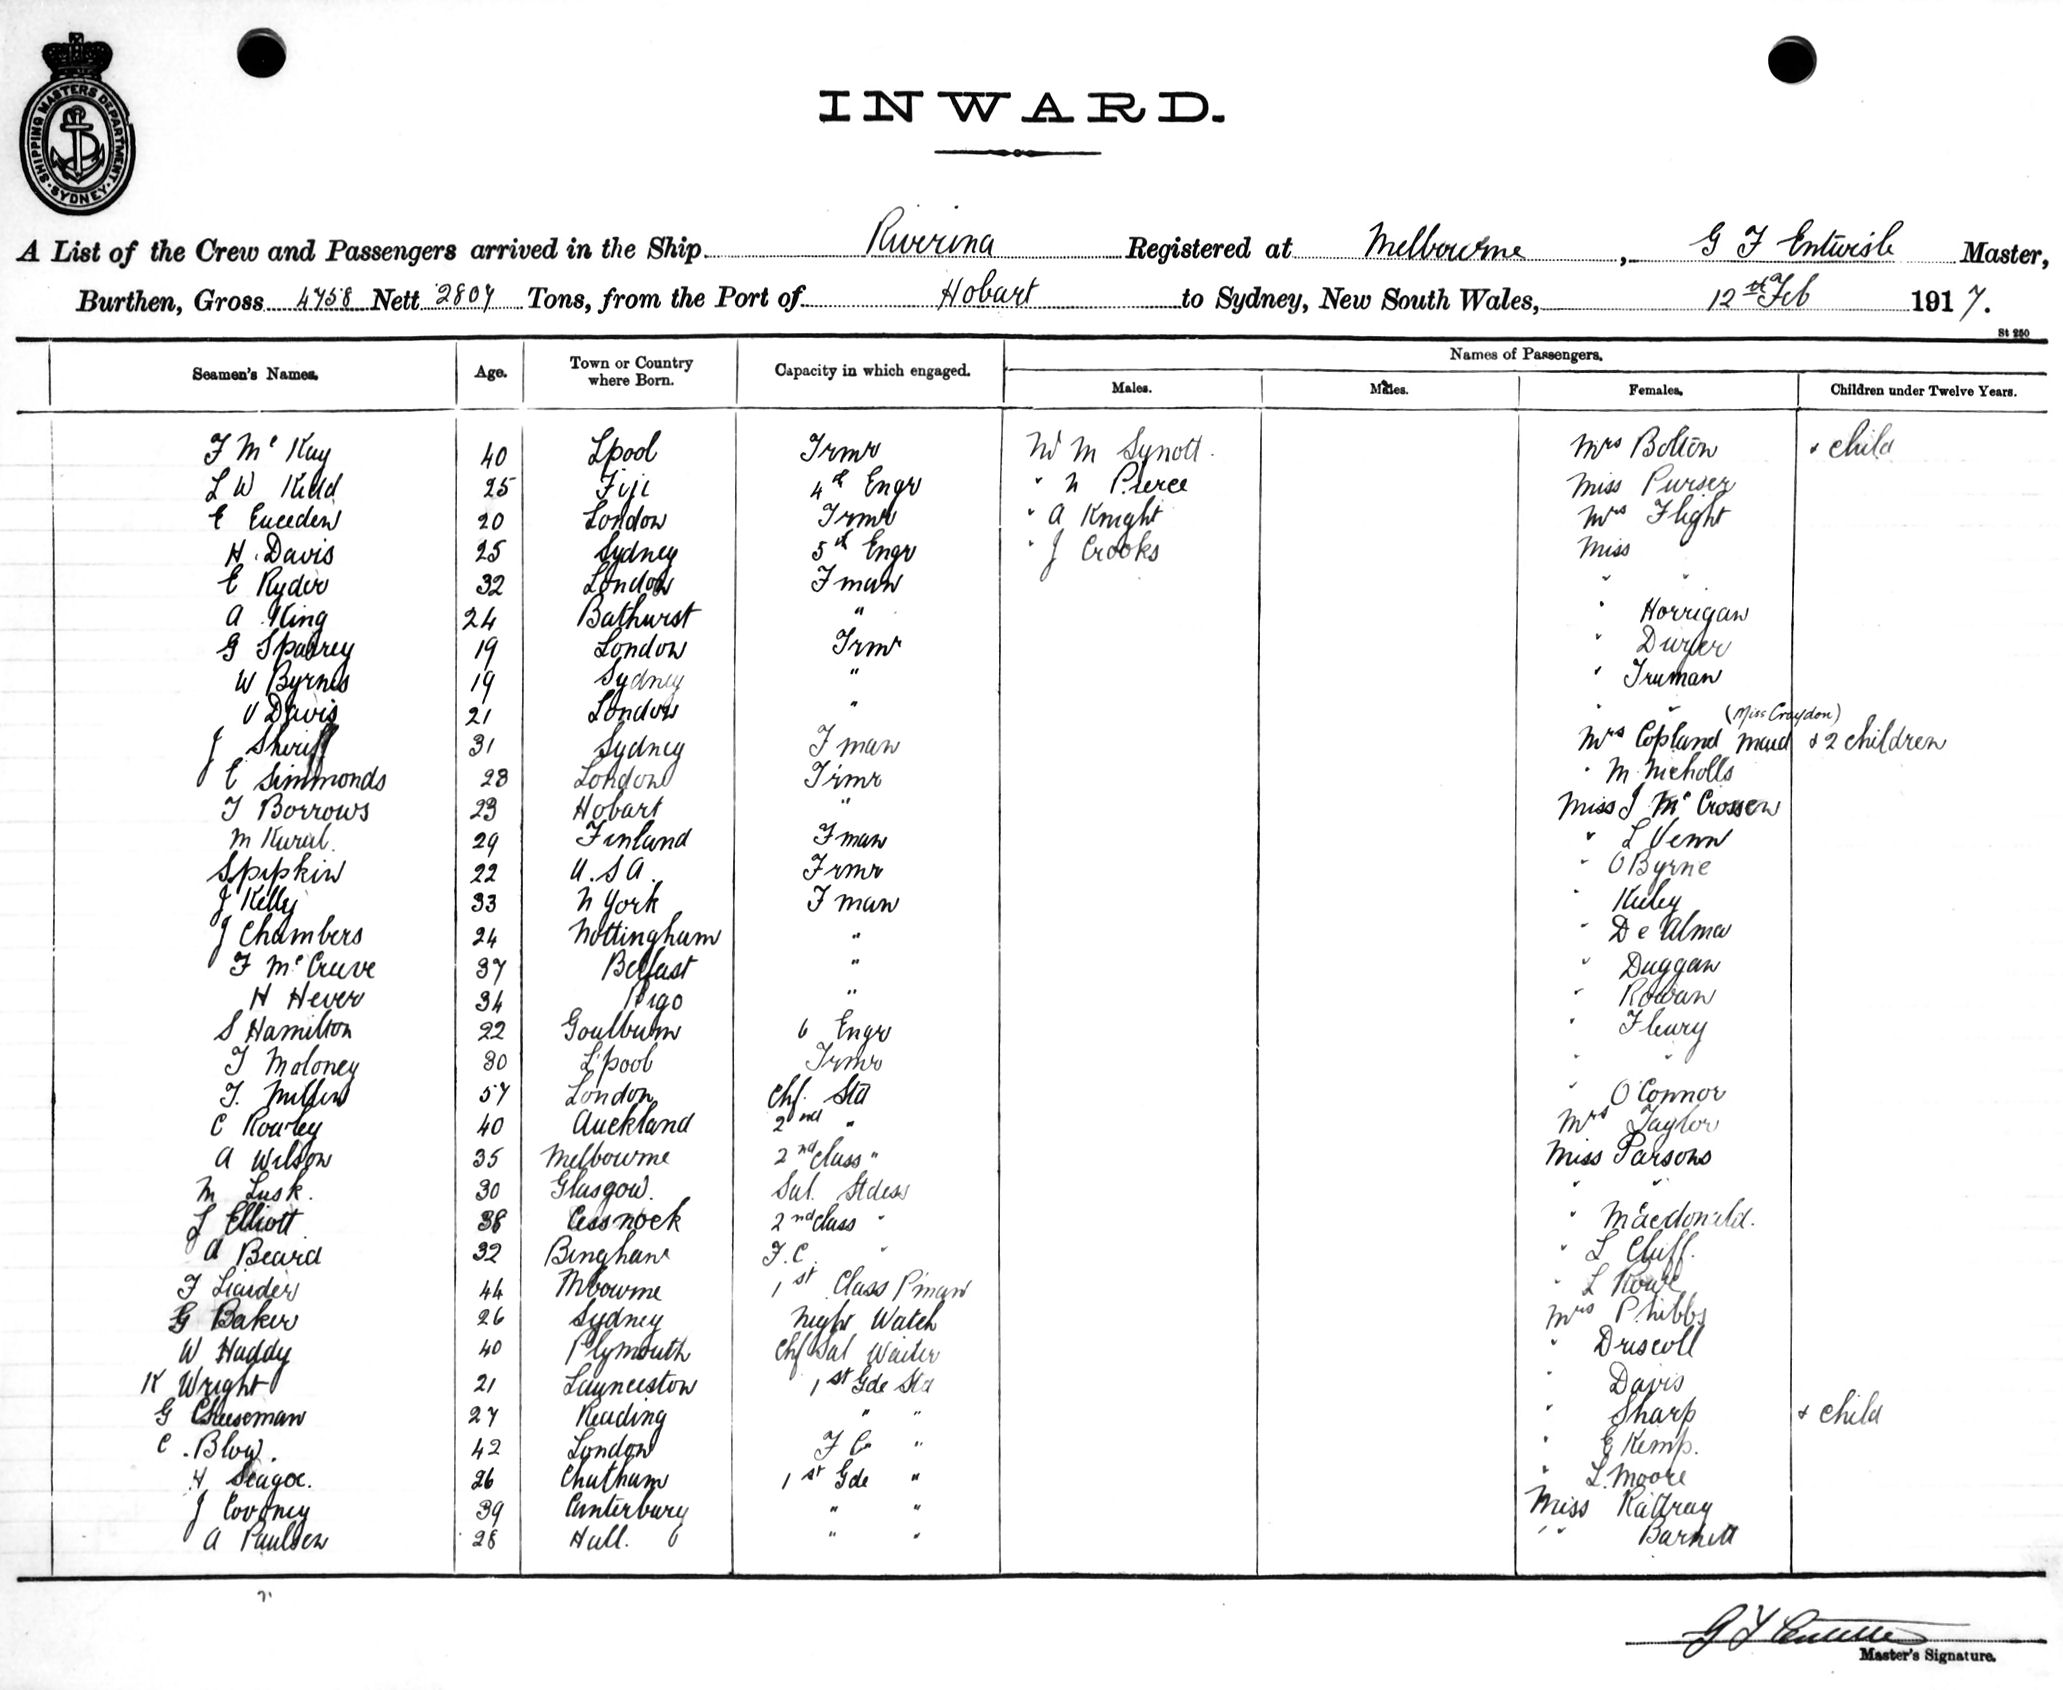 SHIPPING MASTERS DEPARTMENT
SYDNEY
INWARD.
A List of the Crew and Passengers arrived in the Ship Riverina Registered at Melbourne, G F Entwisle Master,
Burthen, Gross 4758 Nett 2807 Tons, from the Port of Hobart to Sydney, New South Wales, 12th Feb 1917.
St 250
Seamen's Names. Age. Town or Country where Born. Capacity in which engaged. Names of Passengers.
Males. Males. Females. Children under Twelve Years.
F Mc Kay 40 Lpool Trmr Mr M Synott. Mrs Bolton & child
L W Kidd 25 Fiji 4th Engr " N Pierce Miss Purser
E 20 London Trmr " A Knight Mrs Flight
H. Davis 25 Sydney 5th Engr " J Crooks Miss
E Ryder 32 London Fman " "
A King 24 Bathurst " " Horrigan
G Sparrey 19 London Trmr " Dwyer
W Byrnes 19 Sydney " " Truman
V Davis 21 London " " "
(Miss Croydon)
J Sheriff 31 Sydney Fman Mrs Copland maid & 2 children
E Simmonds 28 London Trmr " M. Nicholls
T Borrows 23 Hobart " Miss J McCrossen
M 29 Finland Fman " L Venn
S Pipkin 22 U.S.A. Trmr " O Byrne
J Kelly 33 N York Fman " Kieley
J Chambers 24 Nottingham " " De Alma
F Mc Crave 37 Belfast " " Duggan
H Hever 34 " " Rowan
S Hamilton 22 Goulburn 6 Engr " Fleury
T Moloney 30 L'pool Trmr " "
T. 57 London Chf. Std " O'Connor
C Rowley 40 Auckland 2nd " Mrs Taylor
A Wilson 35 Melbourne 2nd class " Miss Parsons
M Lusk. 30 Glasgow. Sal. Stdess " "
L Elliott 38 Cessnock 2nd class " " Macdonald.
A Beard 32 Bingham F.C. " " L Cluff.
F Liarder 44 Mbourne 1st Class Pman " L Rowe
G Baker 26 Sydney Night Watch Mrs Phibbs
W Haddy 40 Plymouth Chf Sal Waiter " Driscoll
K Wright 21 Launceston 1st Gde Std " Davis
G Cheeseman 27 Reading " " " Sharp & child
C. Blow. 42 London F C " " E Kemp.
H Seagoe. 26 Chatham 1st Gde " " L. Moore
J Cooney 39 Canterbury " " Miss Rattray
A Paulsen 28 Hull. " " " Barnett
Master's Signature.